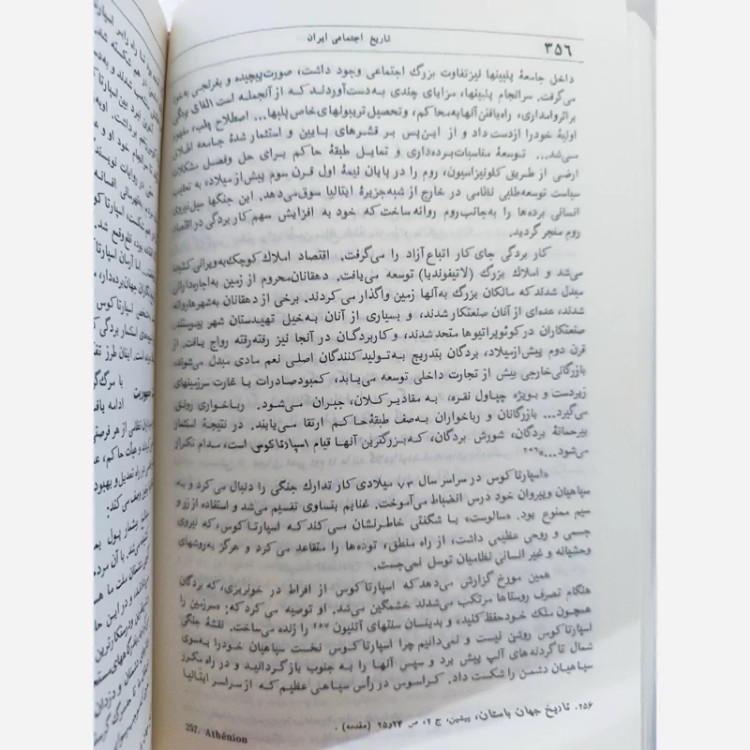 ۳۵۶
تاریخ اجتماعی ایران
داخل جامعهٔ پلبینها نیز تفاوت بزرگ اجتماعی وجود داشت، صورت پیچیده و بغرنجی به خود
می‌گرفت. سرانجام پلبینها، مزایای چندی به‌دست آوردند که از آنجمله است الغای بردگی
براثر وامداری، راه یافتن آنها به محاکم، و تحصیل تریبونهای خاص پلبها... اصطلاح پلب، مفهوم
اولیهٔ خود را از دست داد و از این‌پس بر قشرهای پایین و استثمار شدهٔ جامعه اطلاق
می‌شد... توسعهٔ مناسبات برده‌داری و تمایل طبقهٔ حاکم برای حل وفصل مشکلات
ارضی از طریق کلونیزاسیون، روم را در پایان نیمهٔ اول قرن سوم پیش از میلاد، به تعقیب
سیاست توسعه‌طلبی نظامی در خارج از شبه‌جزیرهٔ ایتالیا سوق می‌دهد. این جنگها سیل نیروی
انسانی برده‌ها را به‌جانب روم روانه ساخت که خود به افزایش سهم کار بردگی در اقتصاد
روم منجر گردید.
کار بردگی جای کار اتباع آزاد را می‌گرفت. اقتصاد املاک کوچک به ویرانی کشیده
می‌شد و املاک بزرگ (لاتیفوندیا) توسعه می‌یافت. دهقانان محروم از زمین به اجاره‌دارانی
مبدل شدند که مالکان بزرگ به آنها زمین واگذار می‌کردند. برخی از دهقانان به شهرها روانه
شدند، عده‌ای از آنان صنعتکار شدند، و بسیاری از آنان به‌خیل تهیدستان شهر پیوستند.
صنعتکاران در کوئوپراتیوها متحد شدند، و کار بردگان در آنجا نیز رفته‌رفته رواج یافت. از
قرن دوم پیش از میلاد، بردگان بتدریج به تولیدکنندگان اصلی نعم مادی مبدل می‌شوند
بازرگانی خارجی بیش از تجارت داخلی توسعه می‌یابد، کمبود صادرات با غارت سرزمینهای
زیردست و بویژه چپاول نقره، به مقادیر کلان، جبران می‌شود. رباخواری رونق
می‌گیرد... بازرگانان و رباخواران به‌صف طبقهٔ حاکم ارتقا می‌یابند. در نتیجهٔ استثمار
بیرحمانهٔ بردگان، شورش بردگان، که بزرگترین آنها قیام اسپارتاکوس است، مدام تکرار
می‌شود...»۲۵۶
«اسپارتاکوس در سراسر سال ۷۳ میلادی کار تدارک جنگی را دنبال می‌کرد و به
سپاهیان وپیروان خود درس انضباط می‌آموخت. غنایم بتساوی تقسیم می‌شد و استفاده از زر و
سیم ممنوع بود. «سالوست» با شگفتی خاطرنشان می‌کند که اسپارتاکوس، که نیروی
جسمی و روحی عظیمی داشت، از راه منطق، توده‌ها را متقاعد می‌کرد و هرگز به روشهای
وحشیانه و غیر انسانی نظامیان توسل نمی‌جست.
همین مورخ گزارش می‌دهد که اسپارتاکوس از افراط در خونریزی، که بردگان
هنگام تصرف روستاها مرتکب می‌شدند خشمگین می‌شد. او توصیه می‌کرد که: «سرزمین را
همچون ملک خود حفظ کنید، و بدینسان سنتهای آتنیون ۲۵۷ را زنده می‌ساخت. نقشهٔ جنگی
اسپارتاکوس روشن نیست و نمی‌دانیم چرا اسپارتاکوس نخست سپاهیان خود را به‌سوی
شمال تا گردنه‌های آلپ پیش برد و سپس آنها را به جنوب بازگردانید و در راه مکرر
سپاهیان دشمن را شکست داد. کراسوس در رأس سپاهی عظیم که از سراسر ایتالیا
۲۵۶. تاریخ جهان باستان، پیشین، ج ۲، ص ۲۴و۲۵ (مقدمه).
257. Athénion